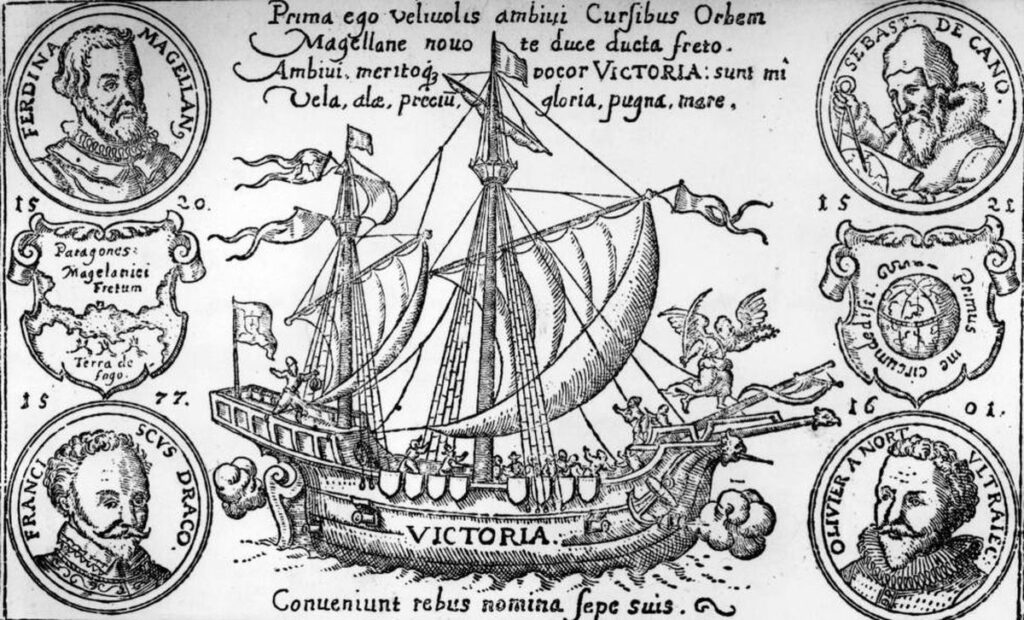 Prima ego velivolis ambivi Cursibus Orbem
Magellane novo te duce ducta freto.
Ambivi, meritoq₃ vocor VICTORIA: sunt mî
Vela, alæ, preciũ, gloria, pugna, mare.
FERDINA MAGELLANꝰ
SEBAST. DE CANO.
15 20.
15 21
Patagones:
Magelanici
Fretum
Terra de
fogo.
Primus me circumdedisti.
15 77.
16 01.
FRANCI SCVS DRACO.
OLIVIER A NORT VLTRAIEC:
VICTORIA.
Conveniunt rebus nomina sepe suis.